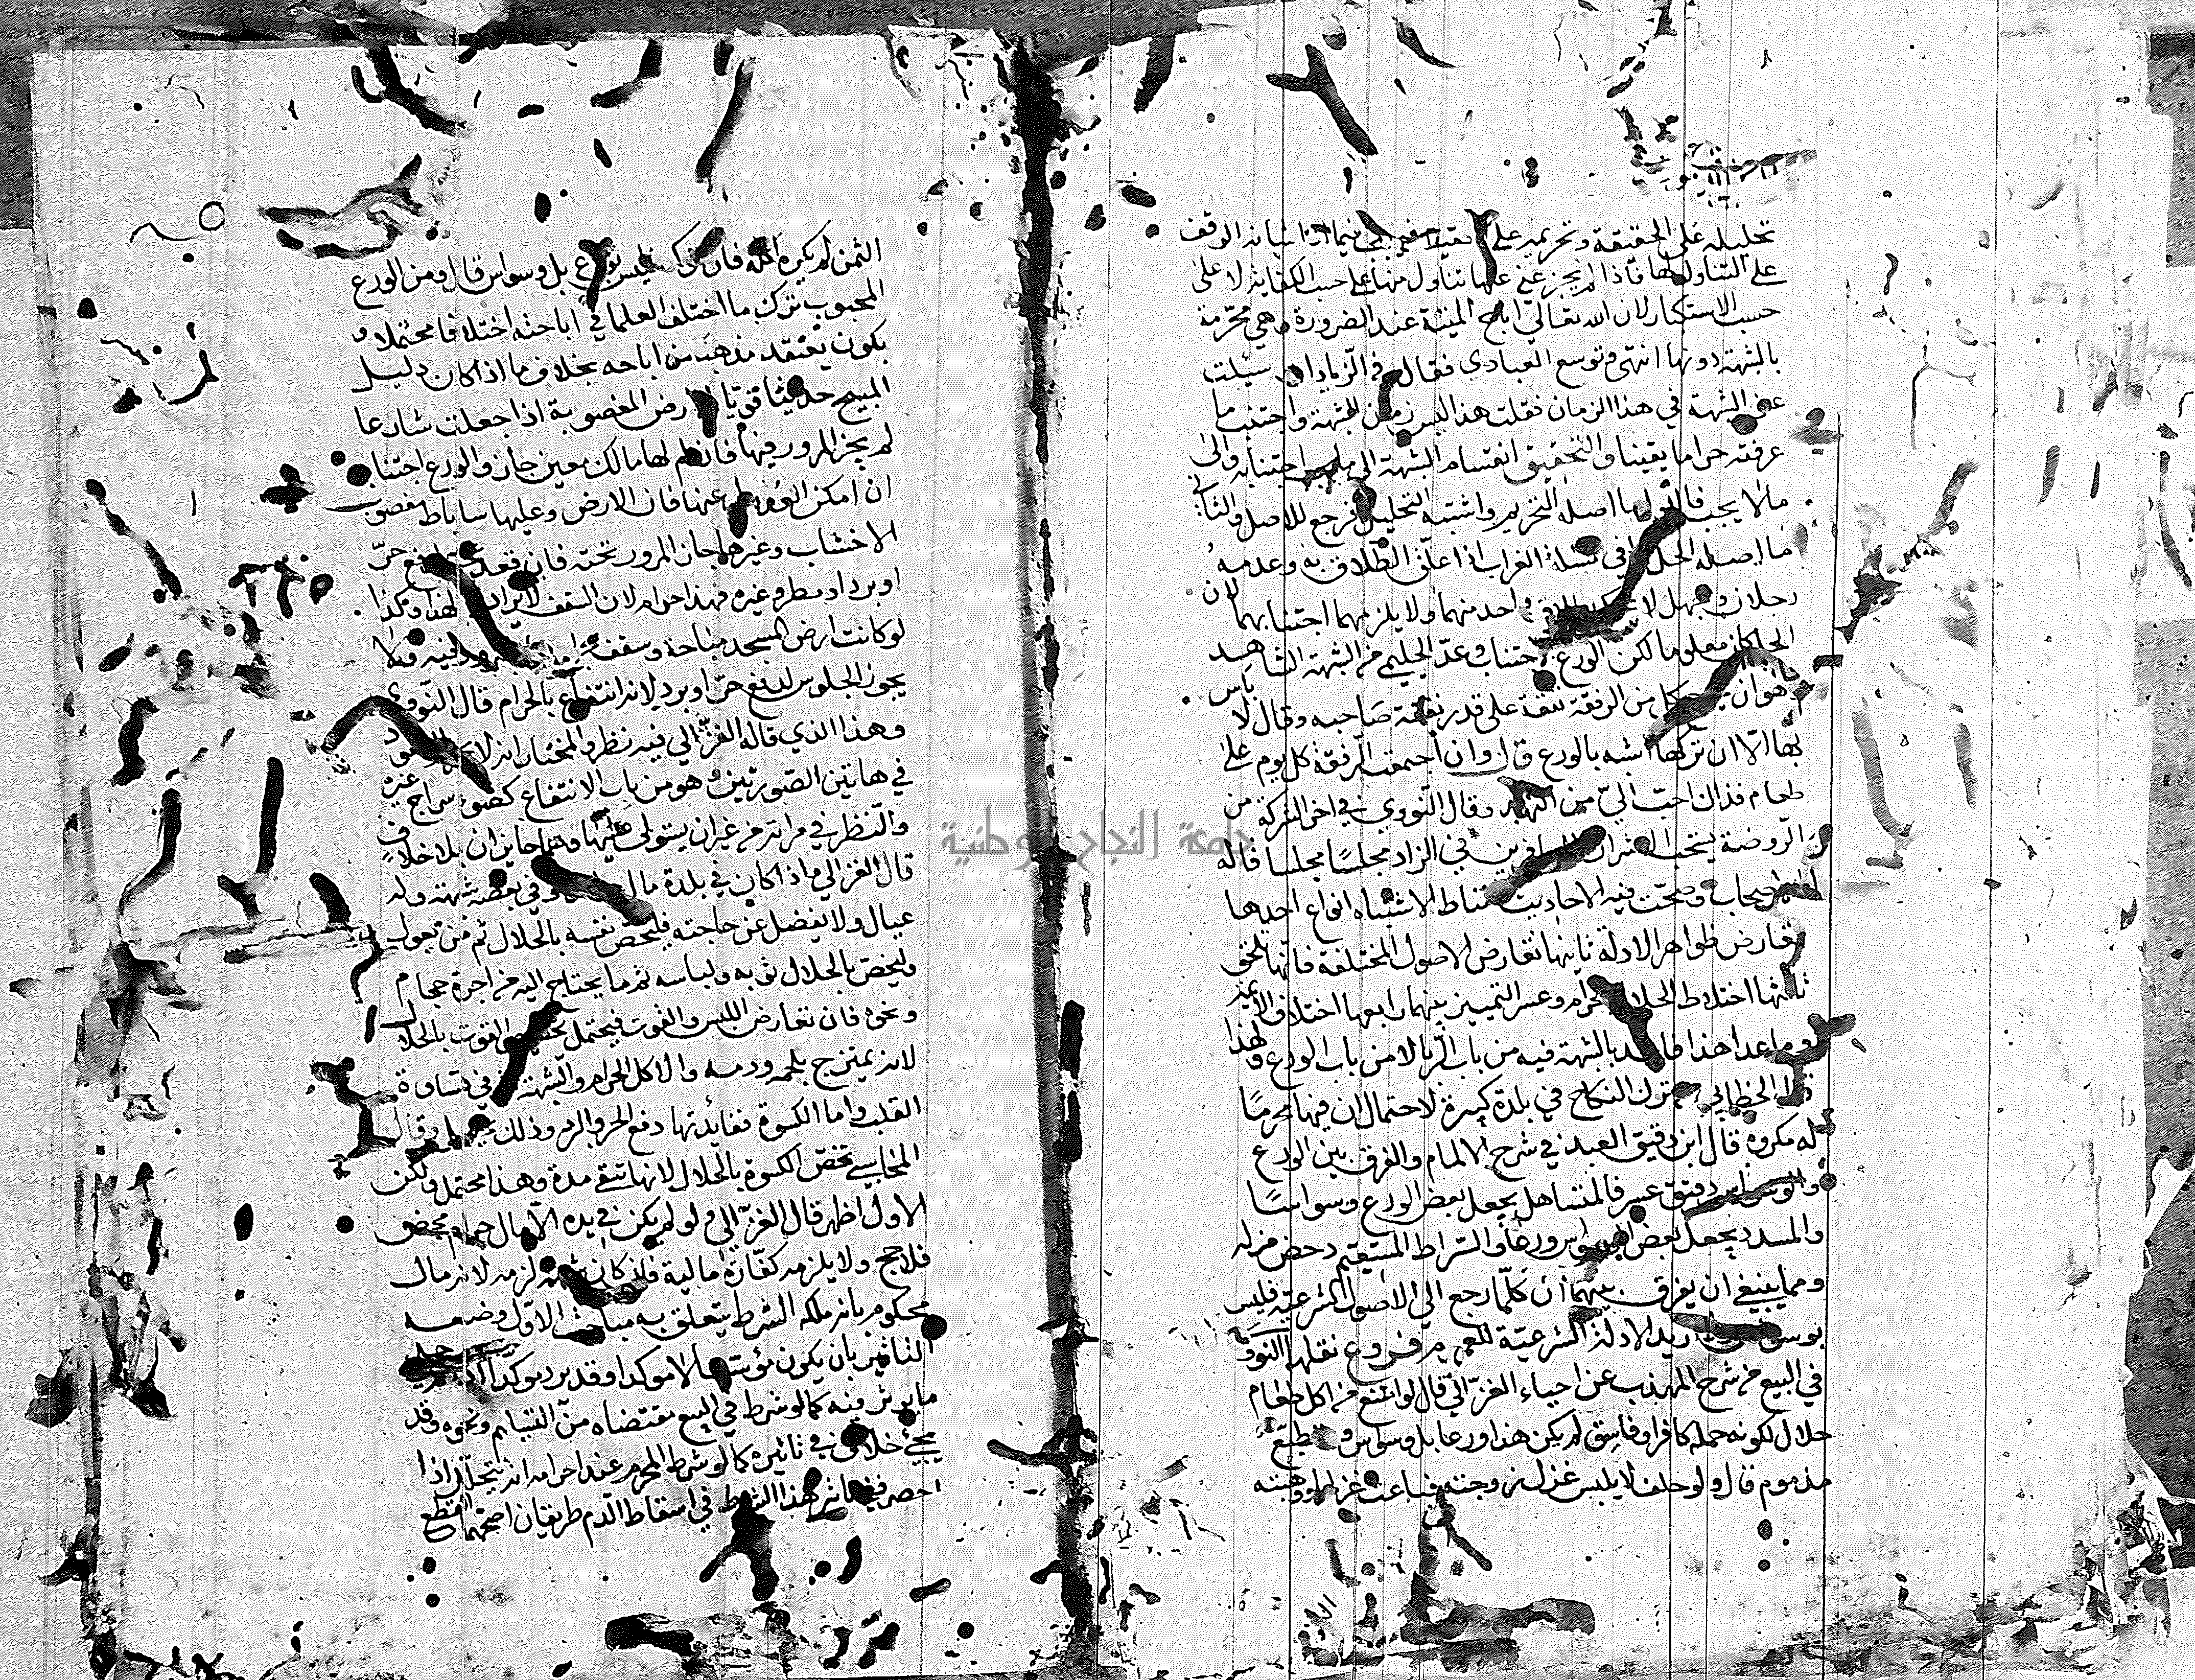 تحليله على الحقيقة وتحريمه على فيما اذا اشتبه الوقف
على التناول منها فاذا لم يجز غنى عنها تناول منها على حسب الكفاية لا على
حسب الاستكثار لان الله تعالى اباح الميتة عند الضرورة وهي محرمة
بالشبهة دونها انتهى وتوسع العبادي فقال في الزيادات سئلت
عن الشبهة في هذا الزمان فقلت هذا ليس زمن الشبهة واجتنب ما
عرفته حراما يقينا والتحقيق انقسام الشبهة الى ما يجب اجتنابه والى
ما لا يجب فالاول ما اصله التحريم واشتبه التحليل فرجع للاصل والثاني
ما اصله الحل وفي مسئلة الغراب اذا علق الطلاق به وعدمه
رجلان وجهل لا واحد منهما ولا يلزمهما اجتنابهما لان
الحل كان معلوما لكن الورع اجتناب وعد الحليمي من الشبهة التناهد
وهو ان كل من الرفقة نفقة على قدر نفقة صاحبه وقال لا باس
بها الا ان تركها اشبه بالورع قال وان اجتمعت الرفقة كل يوم على
طعام فذاك احب الي من النهد وقال النووي في اخر الشركة من
الروضة يستحب في الزاد مجلسا مجلسا قاله
اصحابنا وصحت فيه الاحاديث مناط الاشتباه انواع احدها
تعارض ظواهر الادلة ثانيها تعارض الاصول المختلفة فايها تلحق
ثالثها اختلاط الحلال بالحرام وعسر التمييز بينهما رابعها اختلاف الائمة
وما عدا هذا بالشبهة فيه من باب الربا لا من باب الورع ولهذا
قال الخطابي ترك النكاح في بلدة كبيرة لاحتمال ان فيها محرما
له مكروه قال ابن دقيق العيد في شرح الالمام والفرق بين الورع
والوسواس دقيق عسر فالمتساهل يجعل بعض الورع وسواسا
والمسدد يجعل بعض الوسواس ورعا والصراط المستقيم دحض مزلة
ومما ينبغي ان يفرق بينهما ان كلما رجع الى الاصول الشرعية فليس
الادلة الشرعية فروع نقلها النووي
في البيع من شرح المهذب عن احياء الغزالي قال لو امتنع من اكل طعام
حلال لكونه حمله كافر او فاسق لم يكن هذا ورعا بل وسواس وتنطع
مذموم قال ولو حلف لا يلبس غزل زوجته فباعت غزلها ووهبته
الثمن لم يكره اكله فان تركه فليس بورع بل وسواس قال ومن الورع
المحبوب ترك ما اختلف العلما في اباحته اختلافا محتملا و
يكون يعتقد مذهب من اباحه بخلاف ما اذا كان دليل
المبيح حديثا الارض المغصوبة اذا جعلت شارعا
لم يجز المرور فيها فان لم لها مالك معين جاز والورع اجتنابه
ان امكن العدول عنها فان الارض وعليها ساباط مغصوب
الاخشاب وغيرها جاز المرور تحته فان قعد حر
او برد او مطر وغيره فهذا حرام لان السقف لا يراد الا لهذا وكذا
لو كانت ارض المسجد مباحة وسقف فيه ولا
يجوز الجلوس لدفع حر او برد لانه انتفاع بالحرام قال النووي
وهذا الذي قاله الغزالي فيه نظر والمختار انه لا القعود
في هاتين الصورتين وهو من باب الانتفاع كضوء سراج غيره
والنظر في مراته من غير ان يستولي عليها وهما جايزان بلا خلاف
قال الغزالي واذا كان في بلدة مال وفي بعضه شبهة وله
عيال ولا يفضل عن حاجته فليخص نفسه بالحلال ثم من يعول
وليخص بالحلال ثوبه ولباسه ثم ما يحتاج اليه من اجرة حجام
ونحوه فان تعارض اللبس والقوت فيحتمل تخصيص القوت بالحلال
لانه يمتزج بلحمه ودمه والاكل الحرام والشبهة في قساوة
القلب واما الكسوة ففائدتها دفع الحر والبرد وذلك وقال
المحاسبي تخص الكسوة بالحلال لانها تبقى مدة وهذا محتمل ولكن
الاول اظهر قال الغزالي ولو لم يكن في يده الا مال حرام محض
فلا حج ولا يلزمه كفارة مالية فان كان لزمه لانه مال
محكوم بانه ملكه الشرط يتعلق به مباحث الاول وضعه
التاثير بان يكون مؤسسا لا موكدا وقد يرد موكدا
ما يوثر فيه كما لو شرط في البيع مقتضاه من القسام ونحوه وقد
يجيء خلاف في تاثيره كما لو شرط المحرم عند احرامه انه يتحلل اذا
احصر ففي تاثير هذا الشرط في اسقاط الدم طريقان اصحهما القطع